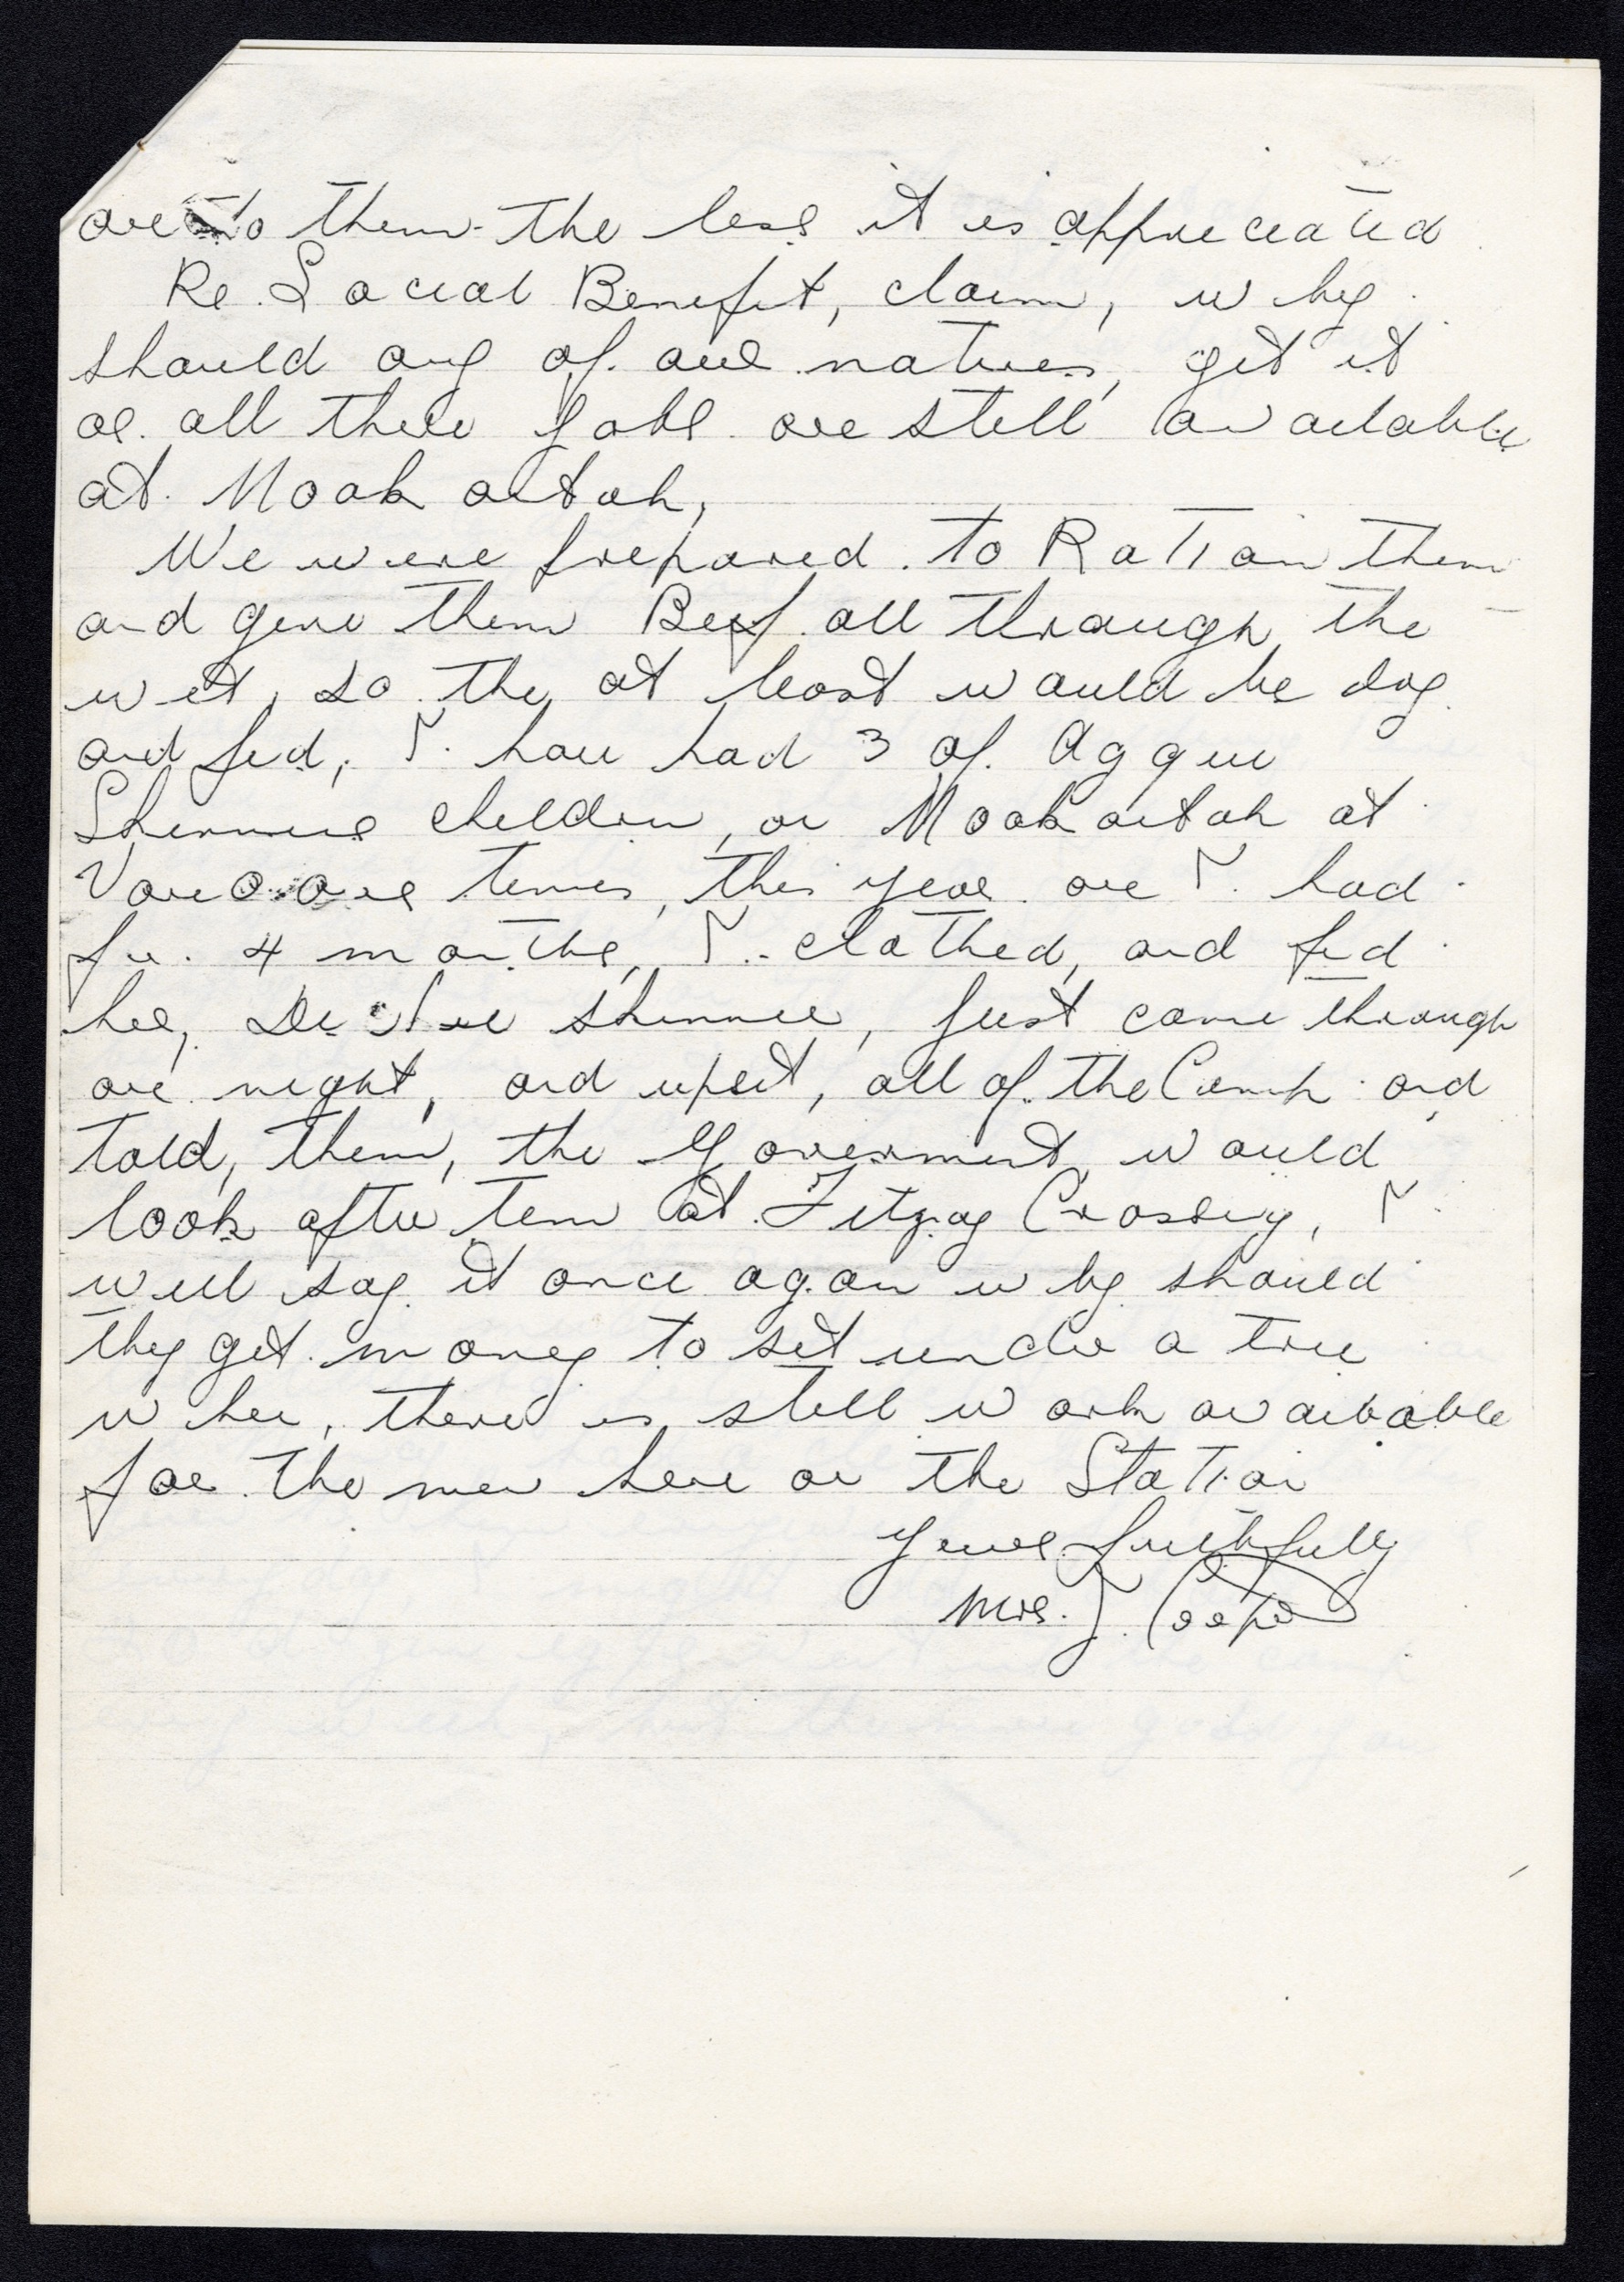 are to them the less it is appreciated
Re. Social Benefit, claim, why
should any of our natives, get it
as all there Jobs are still available
at Mookartah,
We were prepared to Ration them
and give them Beef all through the
wet, so the at least would be dry
and fed, I. have had 3 of Aggie
children, on Mookartah at
Various times, this year one I. had
for 4 months, I. clothed, and fed
her, just came through
one night, and upset, all of the Camp and
told, them, the Goverment would
look after tem at Fitzroy Crossing, I.
will say it once again why should
they get money to sit under a tree
when, there is still work available
for the men here on the Station
Yours faithfully
Mrs. J.